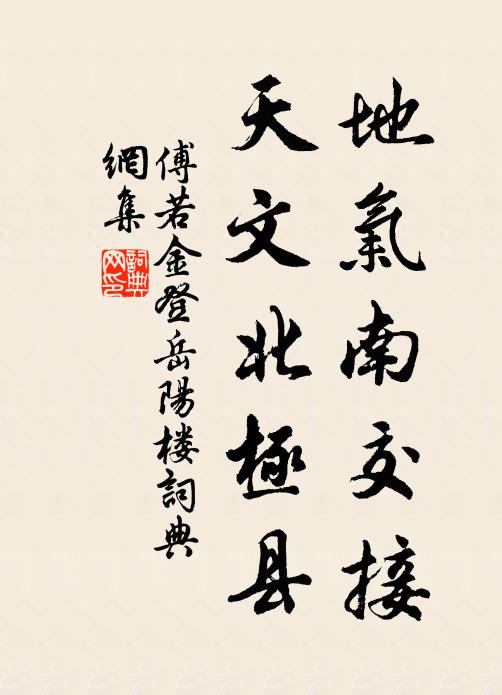 地氣南交接
天文北極县
傅若金登岳陽楼詞典
網集
詞典
网印